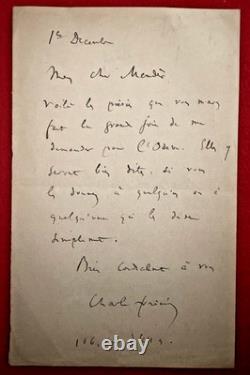 1er Décembre
Mon cher Mendès
voilà la poésie que vous m'avez
fait la grande joie de me
demander pour l'Odéon. Elle y
serait bien dite, si vous
la donnez à quelqu'un ou à
quelqu'une qui la dise
simplement.
Bien cordialement à vous
Charles
106